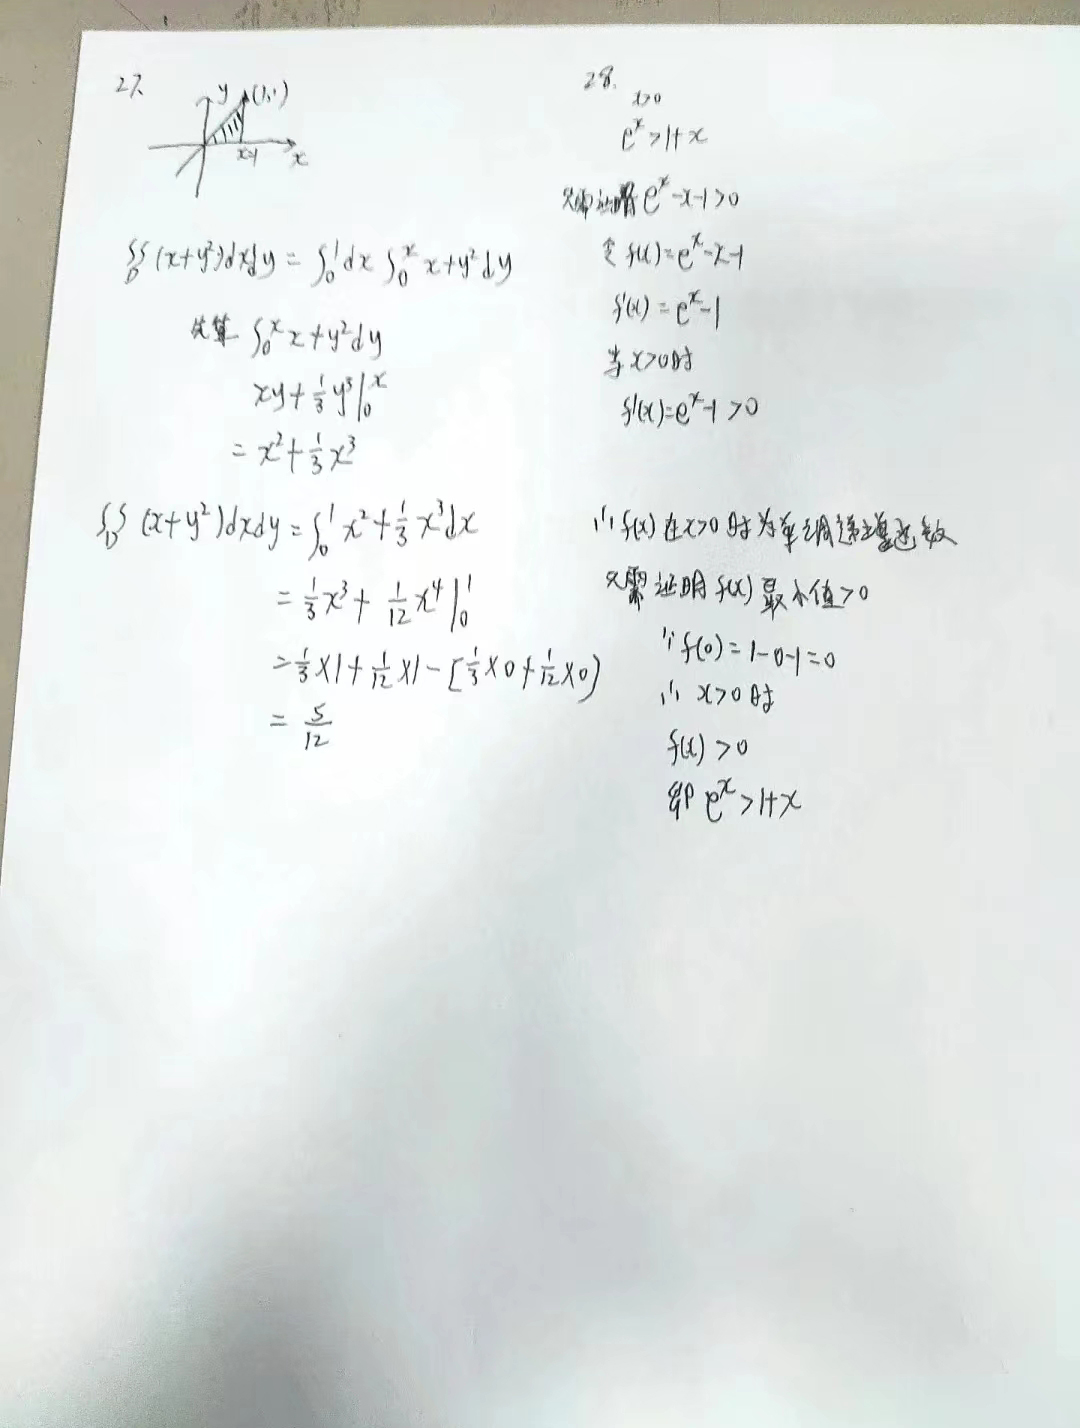 27.
y (1,1)
x=1 x
∬D (x+y²)dxdy = ∫₀¹dx ∫₀ˣ x+y²dy
先算 ∫₀ˣ x+y²dy
xy+⅓y³|₀ˣ
= x²+⅓x³
∬D (x+y²)dxdy = ∫₀¹ x²+⅓x³dx
= ⅓x³ + 1/12 x⁴|₀¹
= ⅓×1+1/12×1-[⅓×0+1/12×0)
= 5/12
28.
x>0
eˣ>1+x
只需证明eˣ-x-1>0
令f(x)=eˣ-x-1
f'(x)=eˣ-1
当x>0时
f'(x)=eˣ-1>0
∴f(x)在x>0时为单调递增函数
只需证明f(x)最小值>0
∵f(0)=1-0-1=0
∴x>0时
f(x)>0
即eˣ>1+x